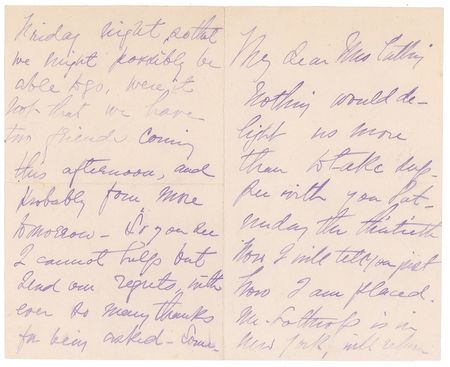 My dear Mrs
Nothing would de-
light us more
than to take sup-
per with you Sat-
urday the thirtieth
Now I will tell you just
how I am placed.
Mr. Lothrop is in
New York, will return
Friday night, so that
we might possibly be
able to go, were it
not that we have
two friends coming
this afternoon, and
probably four more
tomorrow - So you see
I cannot help but
send our regrets, with
ever so many thanks
for being asked - Some-